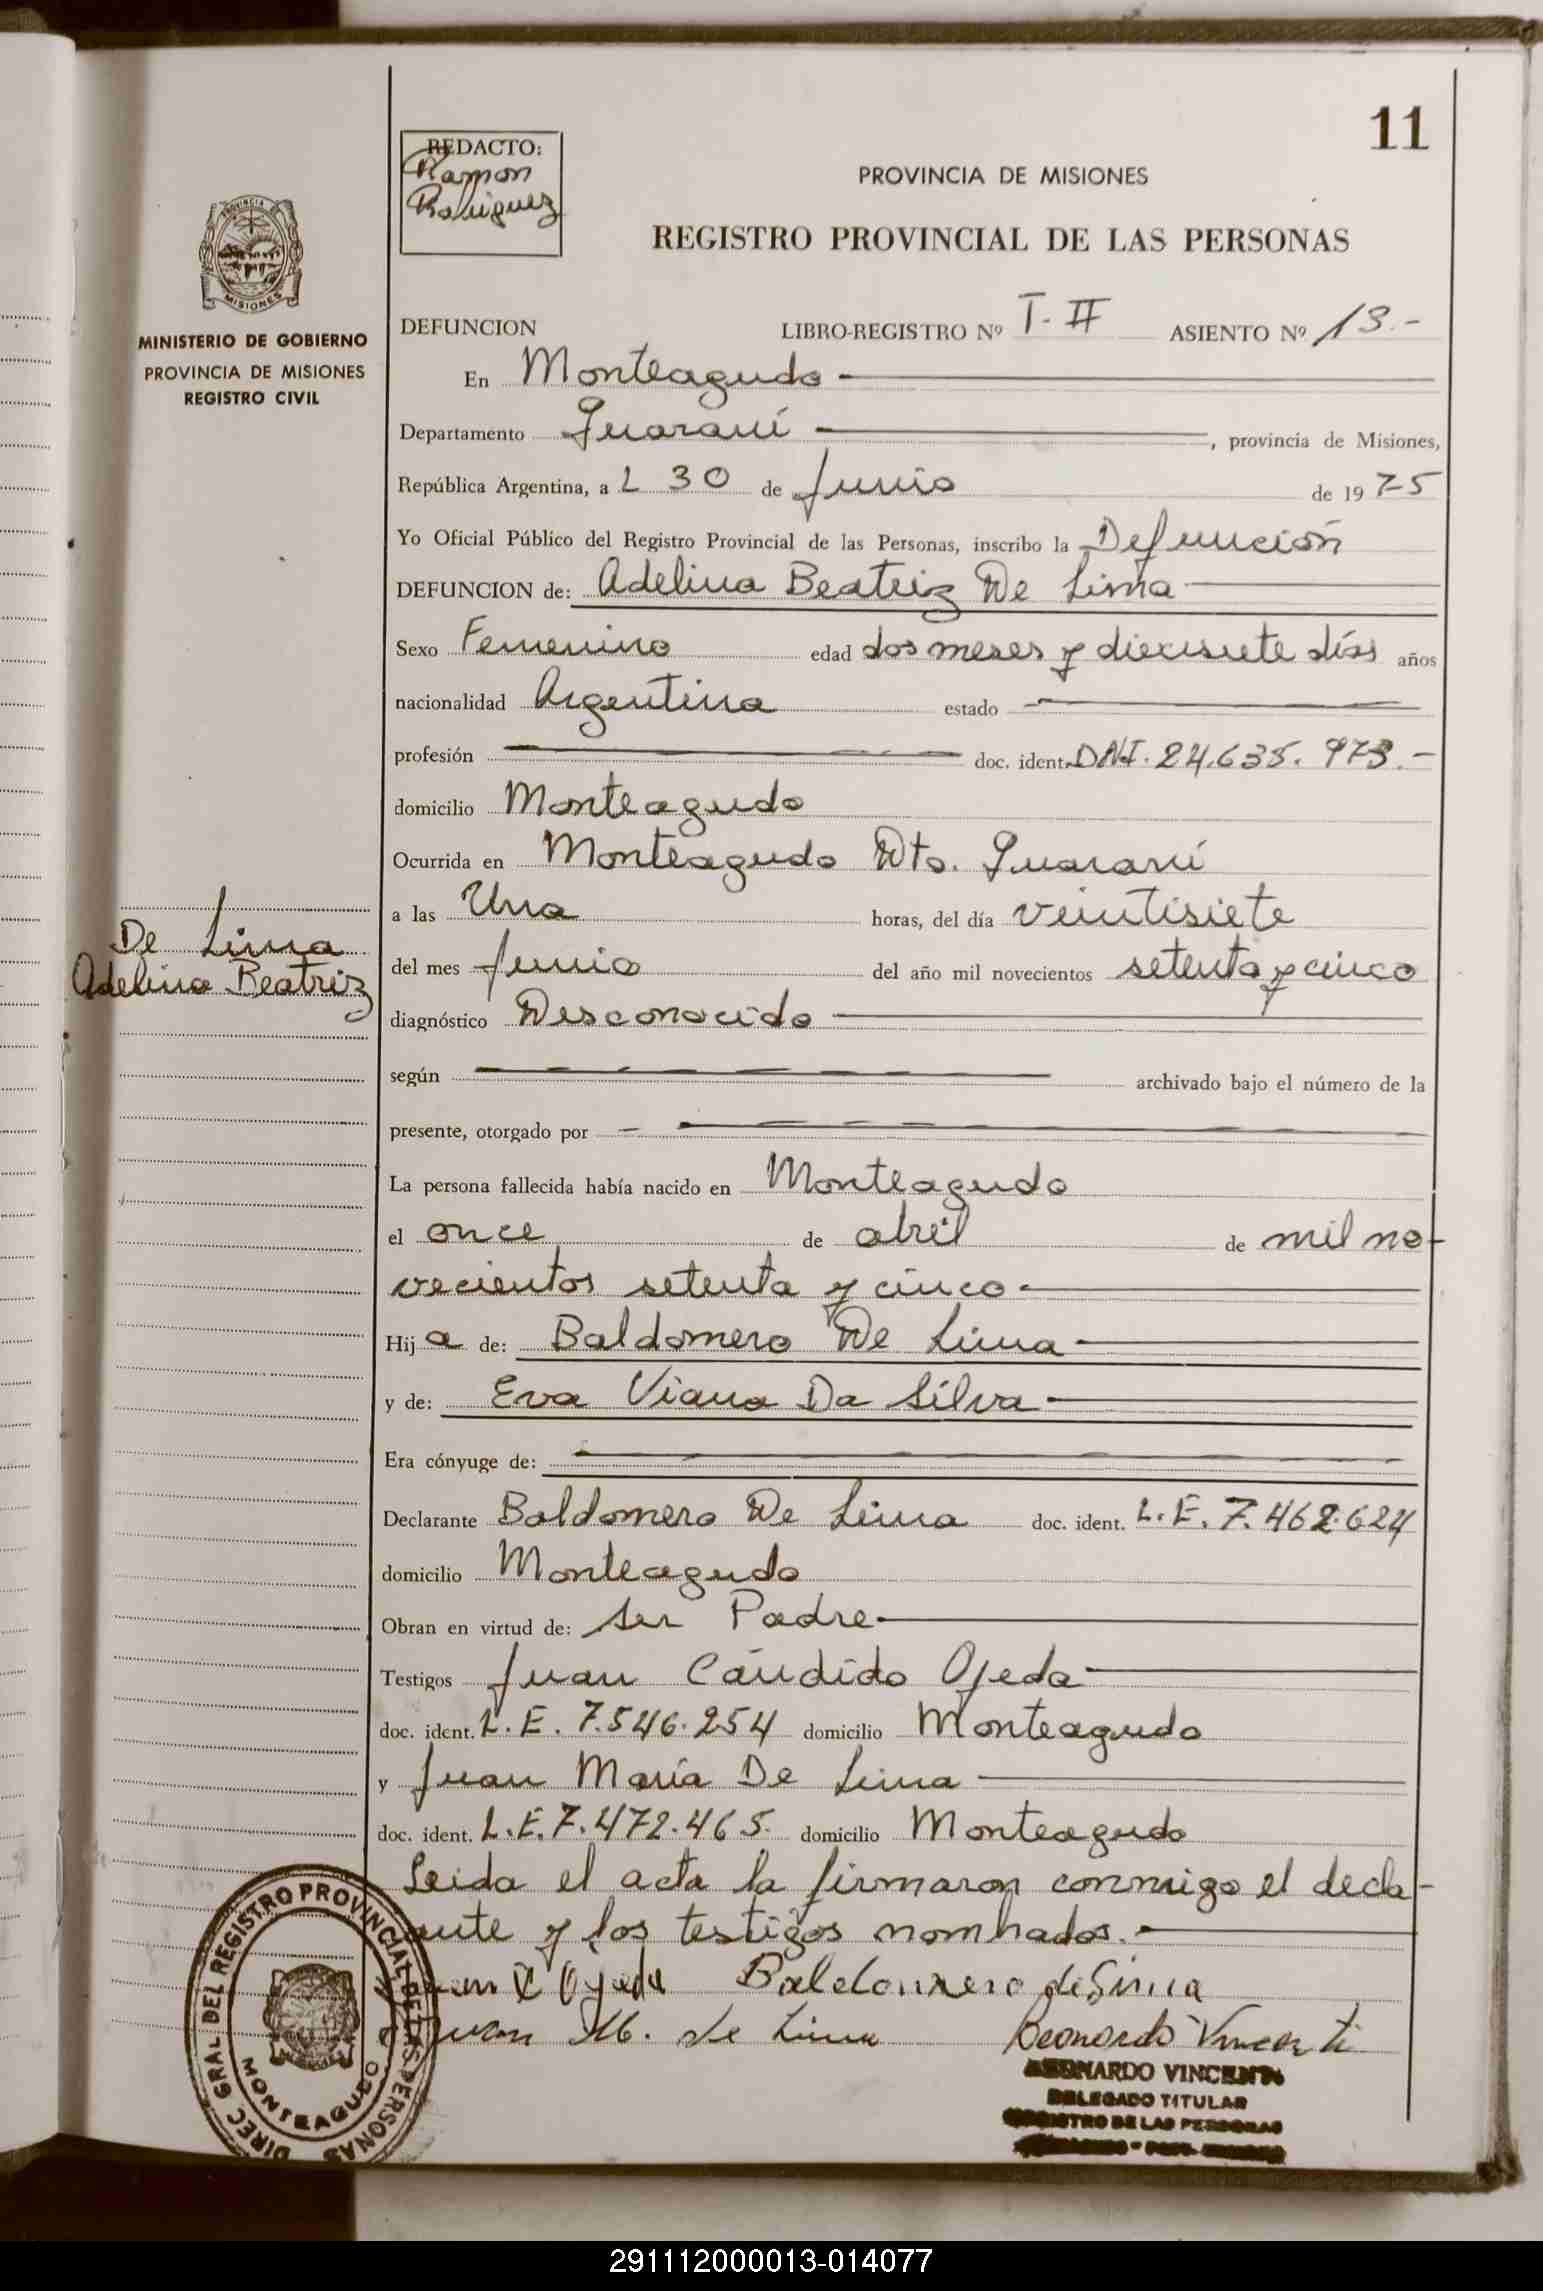 11
REDACTO:
Ramon
Rodriguez
PROVINCIA DE MISIONES
REGISTRO PROVINCIAL DE LAS PERSONAS
PROVINCIA DE
MISIONES
MINISTERIO DE GOBIERNO
PROVINCIA DE MISIONES
REGISTRO CIVIL
DEFUNCION LIBRO-REGISTRO Nº T-II ASIENTO Nº 13.-
En Monteagudo
Departamento Guaraní, provincia de Misiones,
República Argentina, a L 30 de Junio de 1975
Yo Oficial Público del Registro Provincial de las Personas, inscribo la Defunción
DEFUNCION de: Adelina Beatriz De Lima
Sexo Femenino edad dos meses y diecisiete días años
nacionalidad Argentina estado
profesión doc. ident. DNI. 24.635.973.-
domicilio Monteagudo
Ocurrida en Monteagudo Dto. Guaraní
a las Una horas, del día veintisiete
De Lima
Adelina Beatriz
del mes Junio del año mil novecientos setenta y cinco
diagnóstico Desconocido
según archivado bajo el número de la
presente, otorgado por
La persona fallecida había nacido en Monteagudo
el once de abril de mil no-
vecientos setenta y cinco
Hija de: Baldomero De Lima
y de: Eva Viana Da Silva
Era cónyuge de:
Declarante Baldomero De Lima doc. ident. L.E. 7.462.624
domicilio Monteagudo
Obran en virtud de: ser Padre
Testigos Juan Cándido Ojeda
doc. ident. L.E. 7.546.254 domicilio Monteagudo
y Juan María De Lima
doc. ident. L.E. 7.472.465. domicilio Monteagudo
Leida el acta la firmaron conmigo el decla-
rante y los testigos nombrados.
Juan C Ojeda Baldomero de Lima
Juan M. de Lima Leonardo Vincenti
LEONARDO VINCENTI
DELEGADO TITULAR
REGISTRO DE LAS PERSONAS
DIREC GRAL DEL REGISTRO PROVINCIAL DE LAS PERSONAS
MONTEAGUDO
291112000013-014077